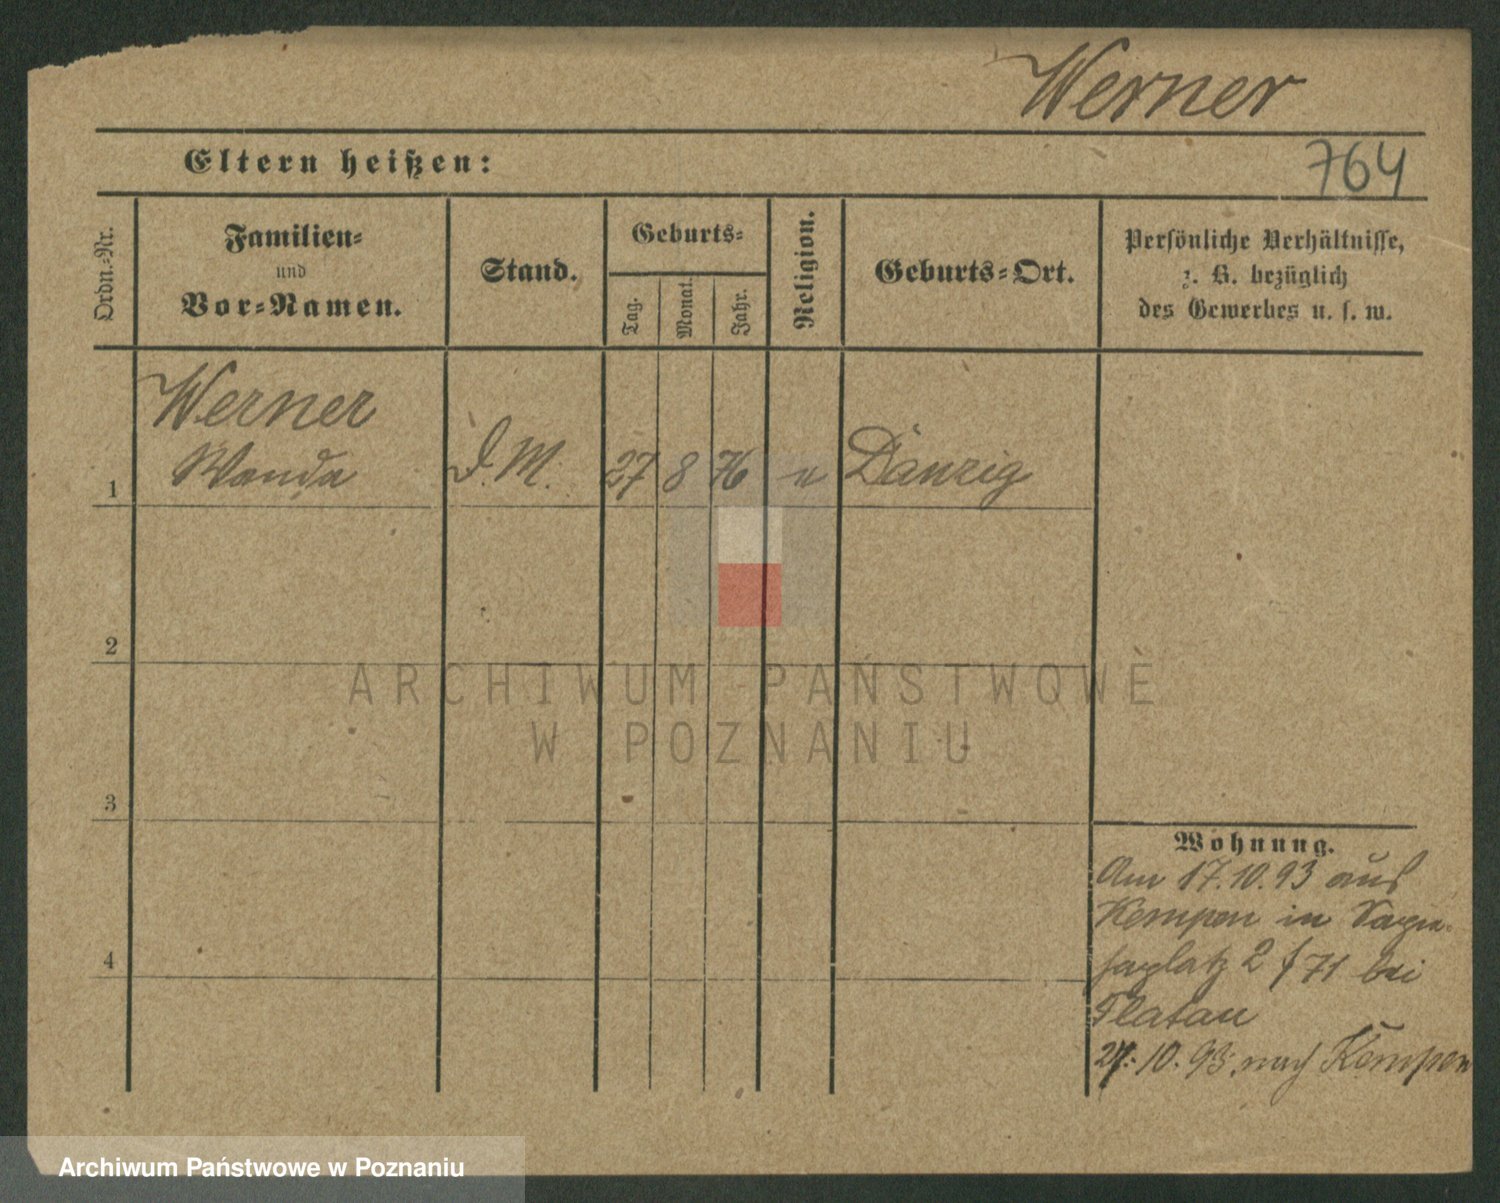 Werner
764
Eltern heißen:
Ordn.-Nr.
Familien-
und
Vor-Namen.
Stand.
Geburts-
Tag.
Monat.
Jahr.
Religion.
Geburts-Ort.
Persönliche Verhältnisse,
z. B. bezüglich
des Gewerbes u. s. w.
Werner
1 Wanda D. M. 27 8 76 Danzig
2
3
4
ARCHIWUM PAŃSTWOWE
W POZNANIU
Wohnung.
Am 17.10.93 aus
Kempen in
2 71 bei
Platau
27.10.93. nach Kempen
Archiwum Państwowe w Poznaniu